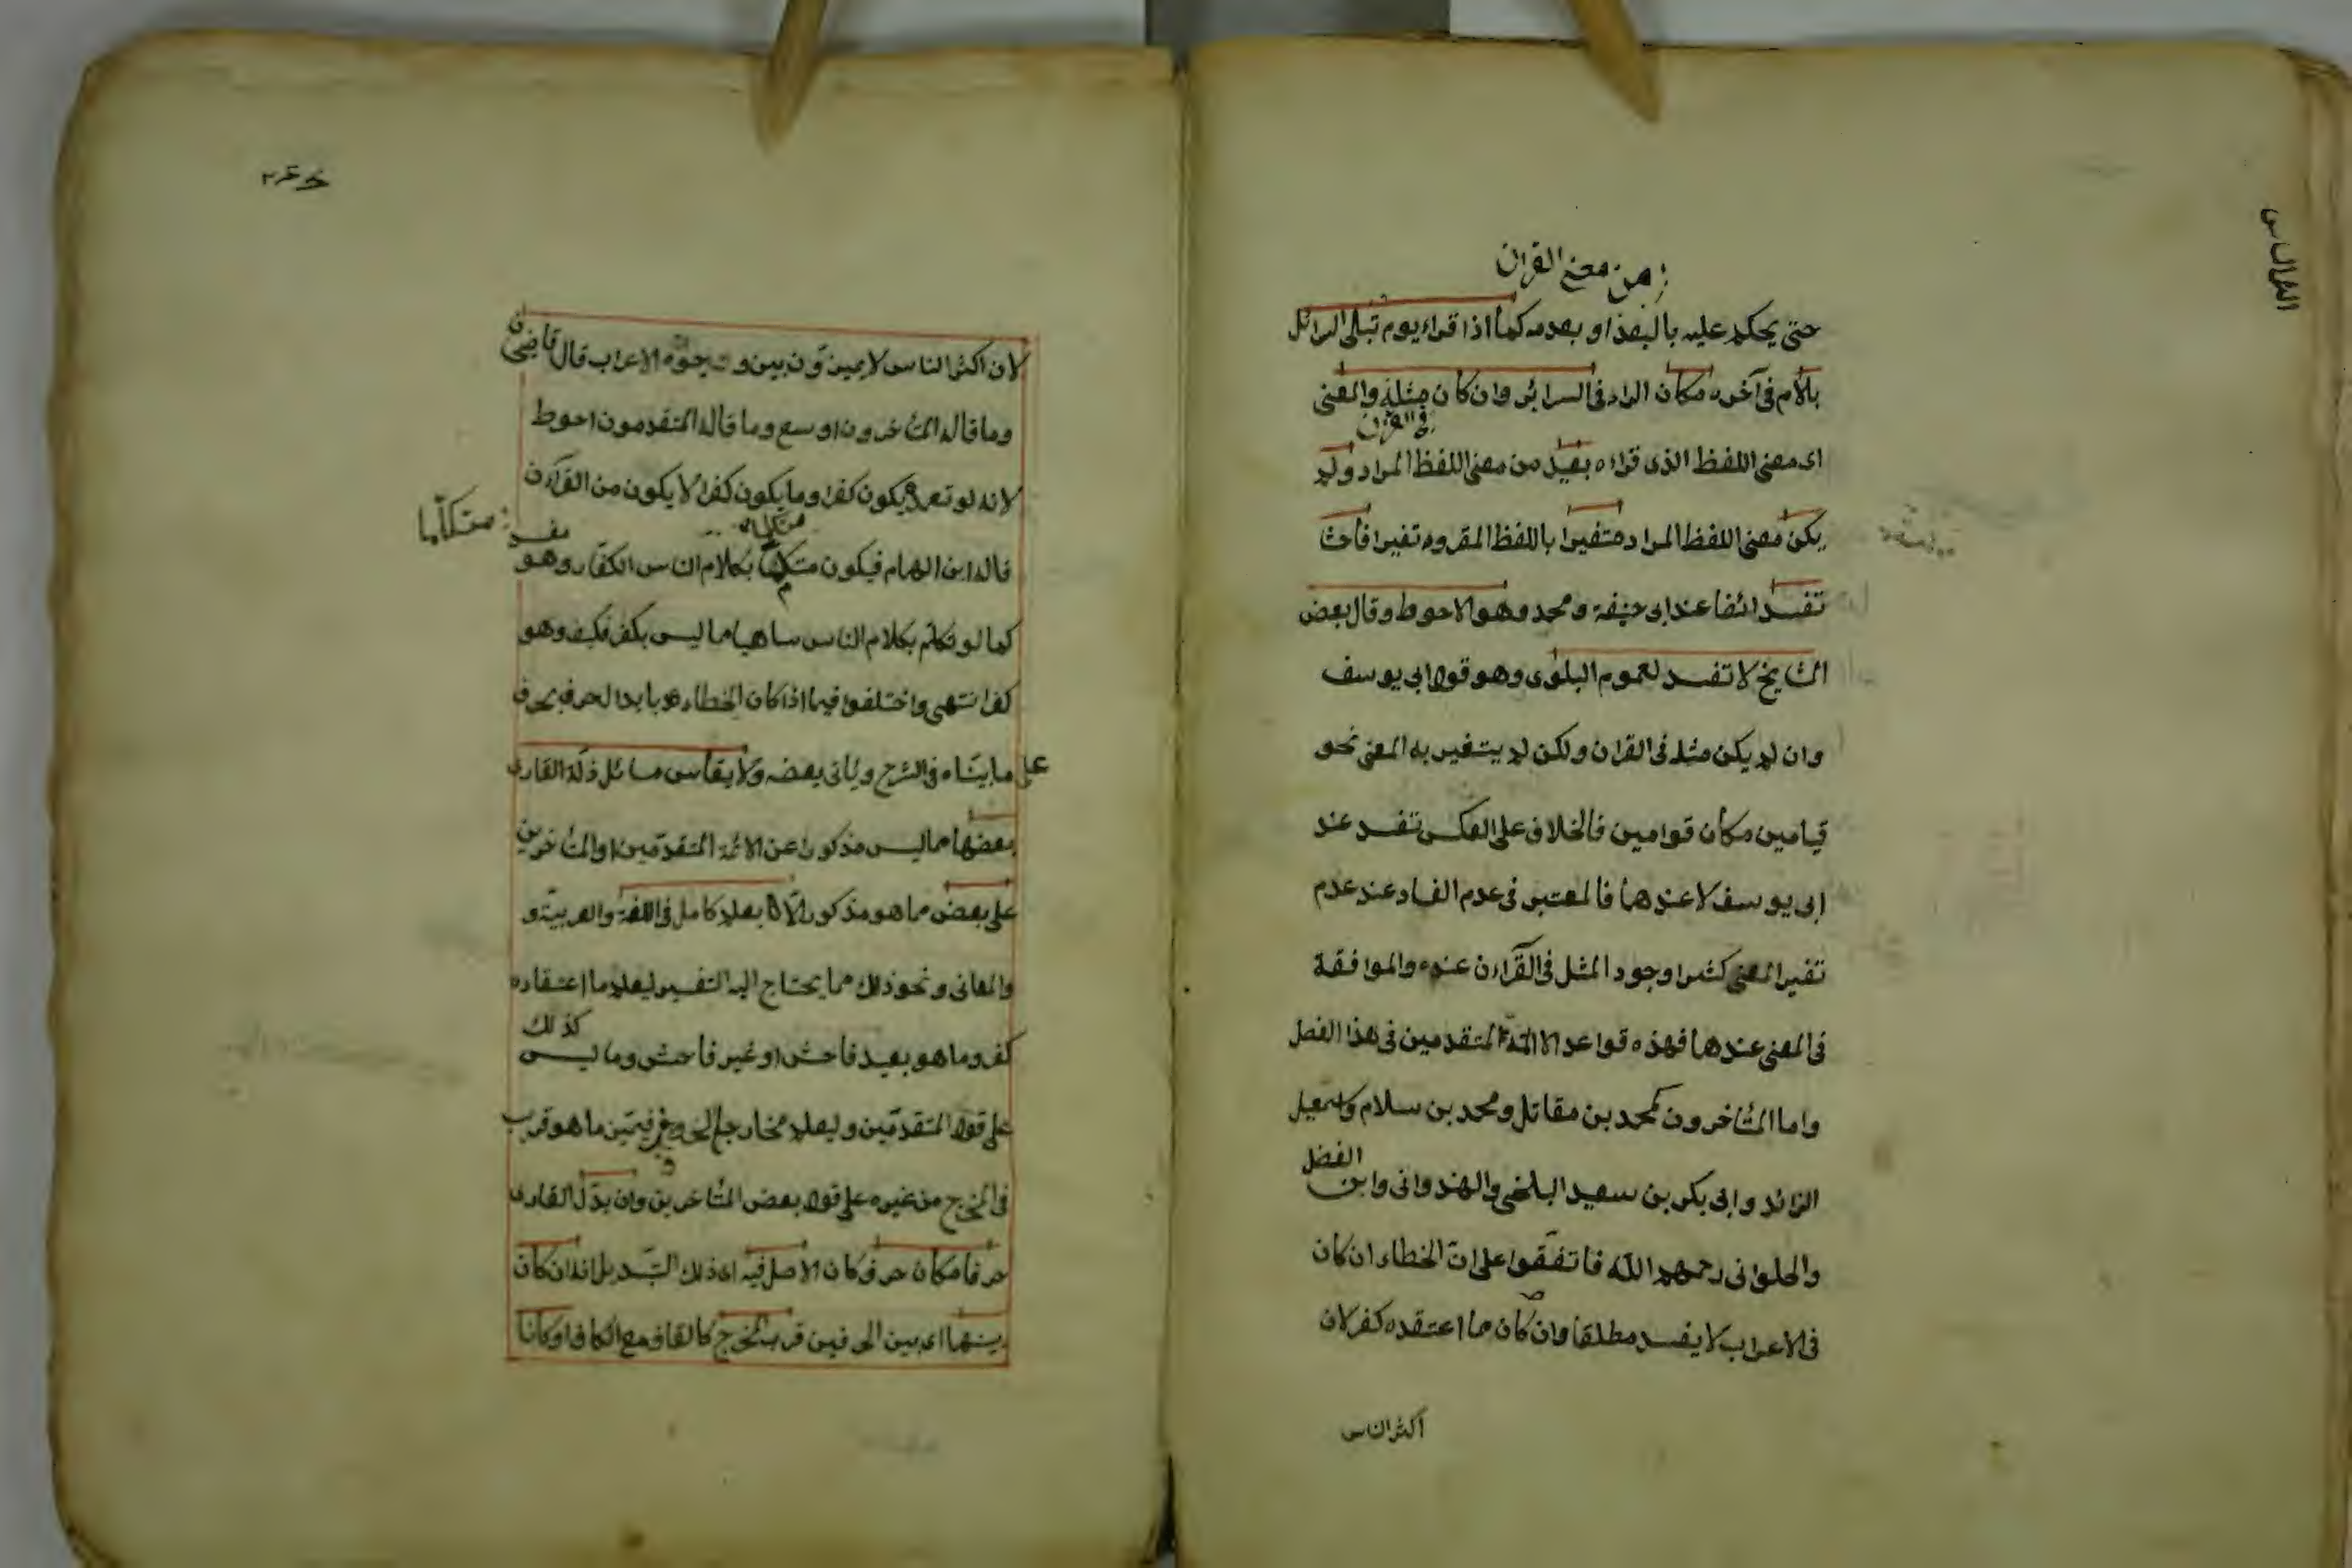 من معنى القرآن
حتى يحكم عليه بالبعد او بعدمه كما اذا قراء يوم تبلى السرائل
بلام فى آخره مكان الراء فى السرائر وان كان مثله والمعنى
فى القرآن
اى معنى اللفظ الذى قراءه بعيد من معنى اللفظ المراد ولم
يكن معنى اللفظ المراد متغيرا باللفظ المقروء تغيرا فاحشا
تفسد ائضا عند ابى حنيفة ومحمد وهو الاحوط وقال بعض
المشايخ لا تفسد لعموم البلوى وهو قول ابى يوسف
وان لم يكن مثله فى القران ولكن لم يتغير به المعنى نحو
قيامين مكان قوامين فالخلاف على العكس تفسد عند
ابى يوسف لا عندهما فالمعتبر فى عدم الفساد عند عدم
تغير المعنى كثيرا وجود المثل فى القرآن عنده والموافقة
فى المعنى عندهما فهذه قواعد الائمة المتقدمين فى هذا الفصل
واما المتأخرون كمحمد بن مقاتل ومحمد بن سلام واسمعيل
الفضل
الزائد وابى بكر بن سعيد البلخى والهندوانى وابن
والحلوانى رحمهم الله فاتفقوا على ان الخطاء ان كان
فى الاعراب لا يفسد مطلقا وان كان مما اعتقده كفر لان
اكثر الناس
لان اكثر الناس لا يميزون بين وجوه الاعراب قال قاضى خان
وما قاله المتأخرون اوسع وما قاله المتقدمون احوط
لانه لو تعمد يكون كفرا وما يكون كفرا لا يكون من القرآن
متكلما
قاله ابن الهمام فيكون متكلما بكلام الناس الكفار وهو
كما لو تكلم بكلام الناس ساهيا مما ليس بكفر فكيف وهو
كفر انتهى واختلفوا فيما اذا كان الخطاء بابدال حرف بحرف
على ما بيناه فى الشرح ويأتى بعضه ولا يقاس مسائل زلة القارى
بعضها مما ليس مذكورا عن الائمة المتقدمين او المتأخرين
على بعض مما هو مذكور الا بعلم كامل فى اللغة والعربية و
والمعانى ونحو ذلك مما يحتاج اليه التفسير ليعلم ما اعتقاده
كذلك
كفر وما هو بعيد فاحش او غير فاحش وما ليس
على قول المتقدمين وليعلم مخارج الحروف فيميز ما هو قريب
فى المخرج من غيره على قول بعض المتأخرين وان بدل القارى
حرفا مكان حرف وكان الاصل فيه اى ذلك التبديل انه ان كان
بينهما اى بين الحرفين قرب المخرج كالقاف مع الكاف او كانا